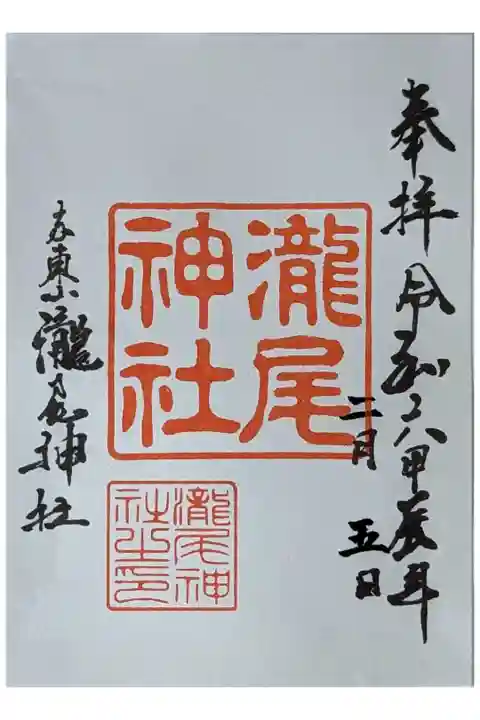 奉拝 令和六甲辰年
二月 五日
瀧尾
神社
瀧尾神
社之印
京東山 瀧尾神社